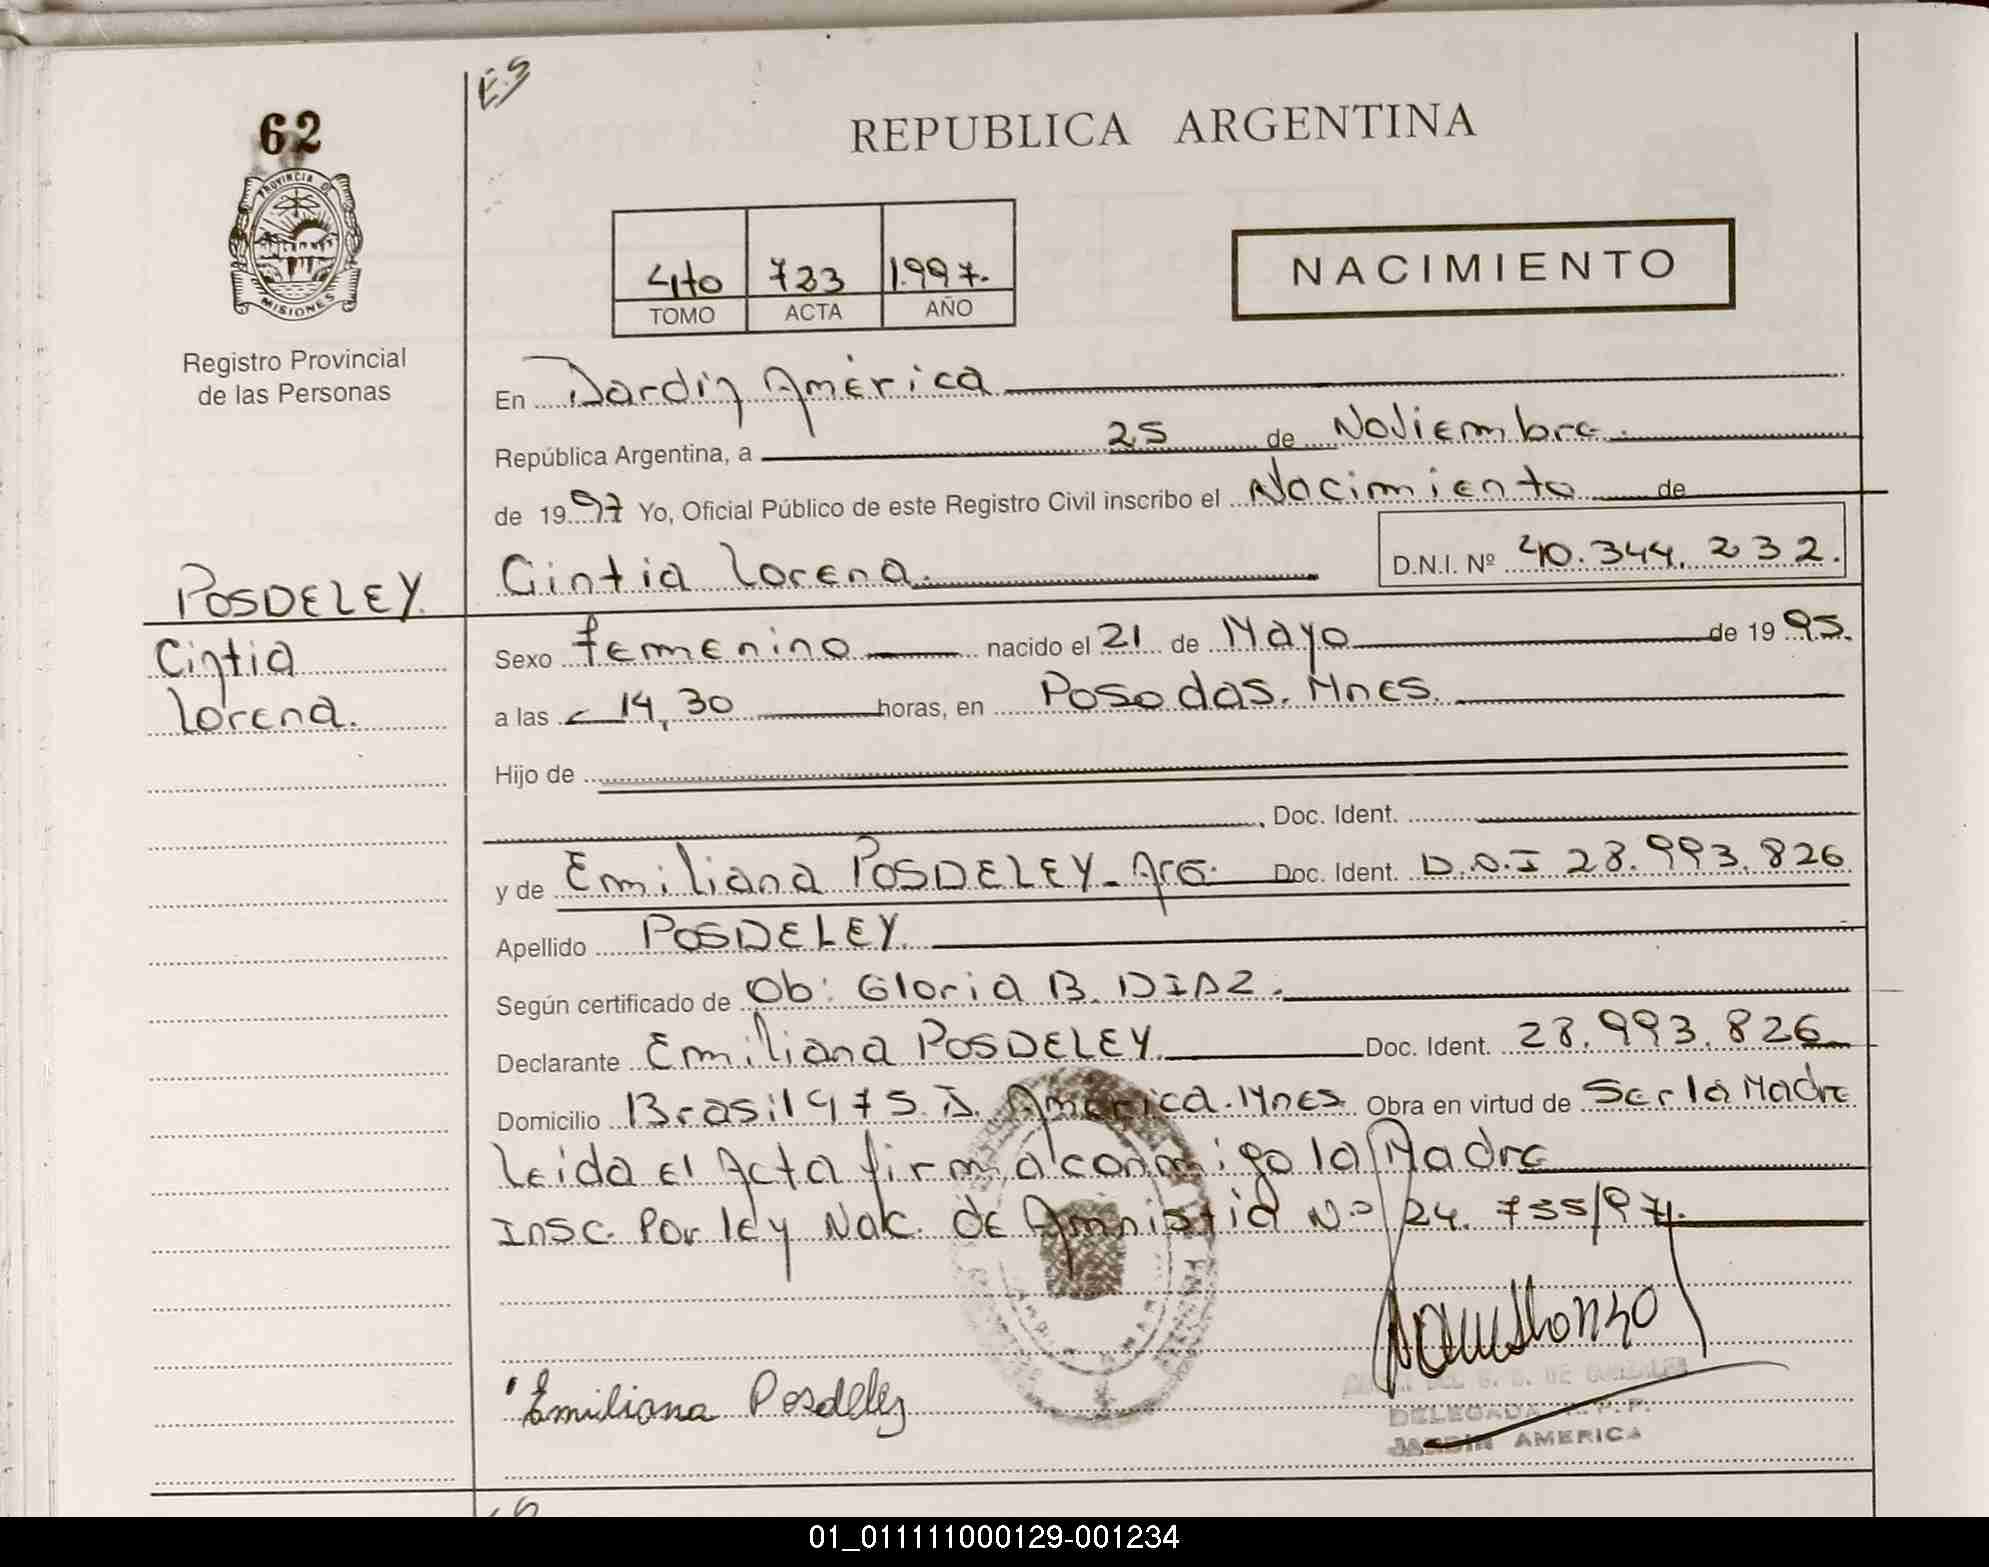 62
PROVINCIA DE
MISIONES
Registro Provincial
de las Personas
POSDELEY.
Cintia
Lorena.
REPUBLICA ARGENTINA
4to 723 1.997.
TOMO ACTA AÑO
NACIMIENTO
En Jardin América
República Argentina, a 25 de Noviembre.
de 1997 Yo, Oficial Público de este Registro Civil inscribo el Nacimiento de
Cintia Lorena. D.N.I. Nº 40.344.232.
Sexo femenino nacido el 21 de Mayo de 1995.
a las 14,30 horas, en Posadas. Mnes.
Hijo de
, Doc. Ident.
y de Emiliana POSDELEY - Arg. Doc. Ident. D.N.I 28.993.826
Apellido POSDELEY.
Según certificado de Ob: Gloria B. DIAZ.
Declarante Emiliana POSDELEY. Doc. Ident. 28.993.826
Domicilio Brasil 975. J. América. Mnes Obra en virtud de Ser la Madre
Leida el Acta firma conmigo la Madre
Insc. Por ley Nac. de Amnistia Nº 24.755/97.
Emiliana Posdeley
DELEGADA R.P.P.
JARDIN AMERICA
01_011111000129-001234